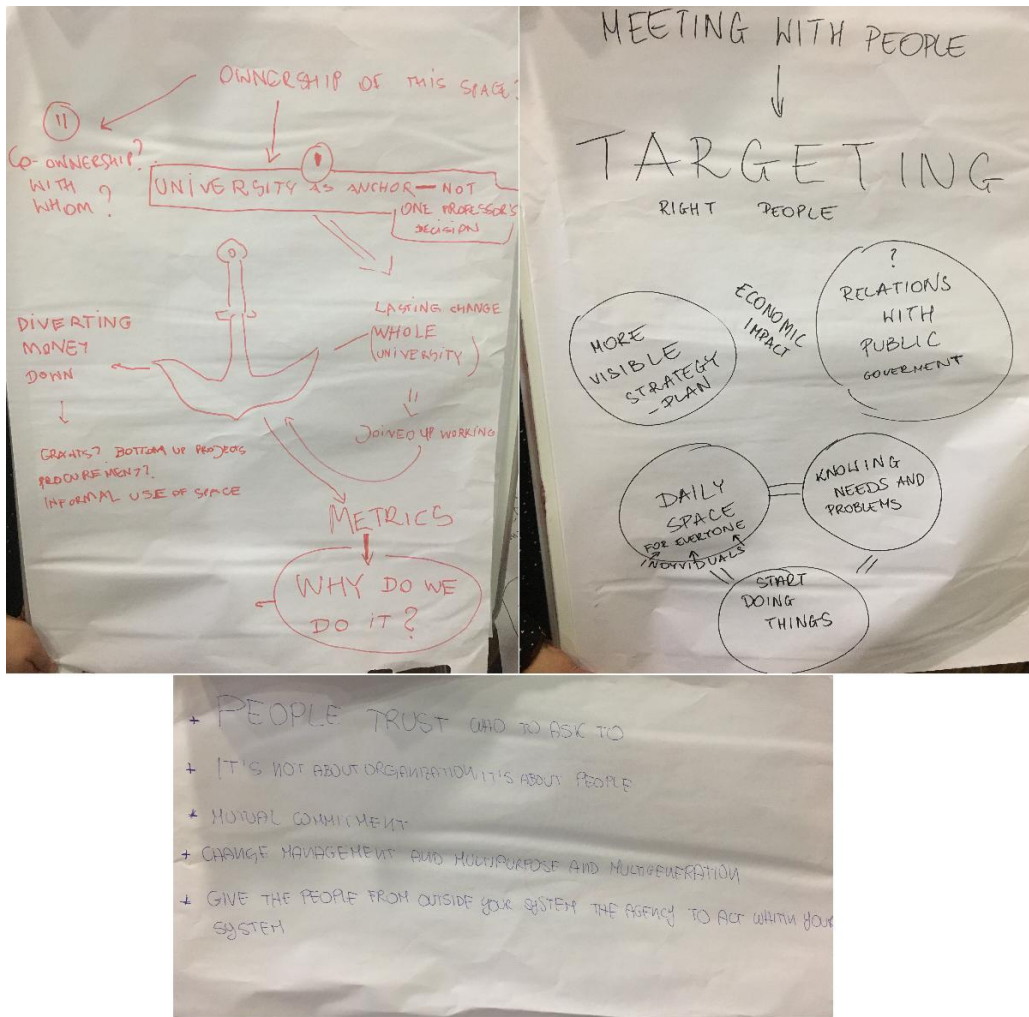 OWNERSHIP OF THIS SPACE?
11
CO-OWNERSHIP?
WITH
WHOM?
1
UNIVERSITY AS ANCHOR — NOT
ONE PROFESSOR'S
DECISION
LASTING CHANGE
WHOLE
(UNIVERSITY)
DIVERTING
MONEY
DOWN
JOINED UP WORKING
GRANTS? BOTTOM UP PROJECTS
PROCUREMENT?
INFORMAL USE OF SPACE
METRICS
WHY DO WE
DO IT?
MEETING WITH PEOPLE
TARGETING
RIGHT PEOPLE
MORE
VISIBLE
STRATEGY
- PLAN
ECONOMIC
IMPACT
?
RELATIONS
WITH
PUBLIC
GOVERMENT
DAILY
SPACE
FOR EVERYONE
INDIVIDUALS
KNOWING
NEEDS AND
PROBLEMS
START
DOING
THINGS
+ PEOPLE TRUST WHO TO ASK TO
+ IT'S NOT ABOUT ORGANIZATION IT'S ABOUT PEOPLE
+ MUTUAL COMMITMENT
+ CHANGE MANAGEMENT AND MULTIPURPOSE AND MULTIGENERATION
+ GIVE THE PEOPLE FROM OUTSIDE YOUR SYSTEM THE AGENCY TO ACT WHITIN YOUR
SYSTEM